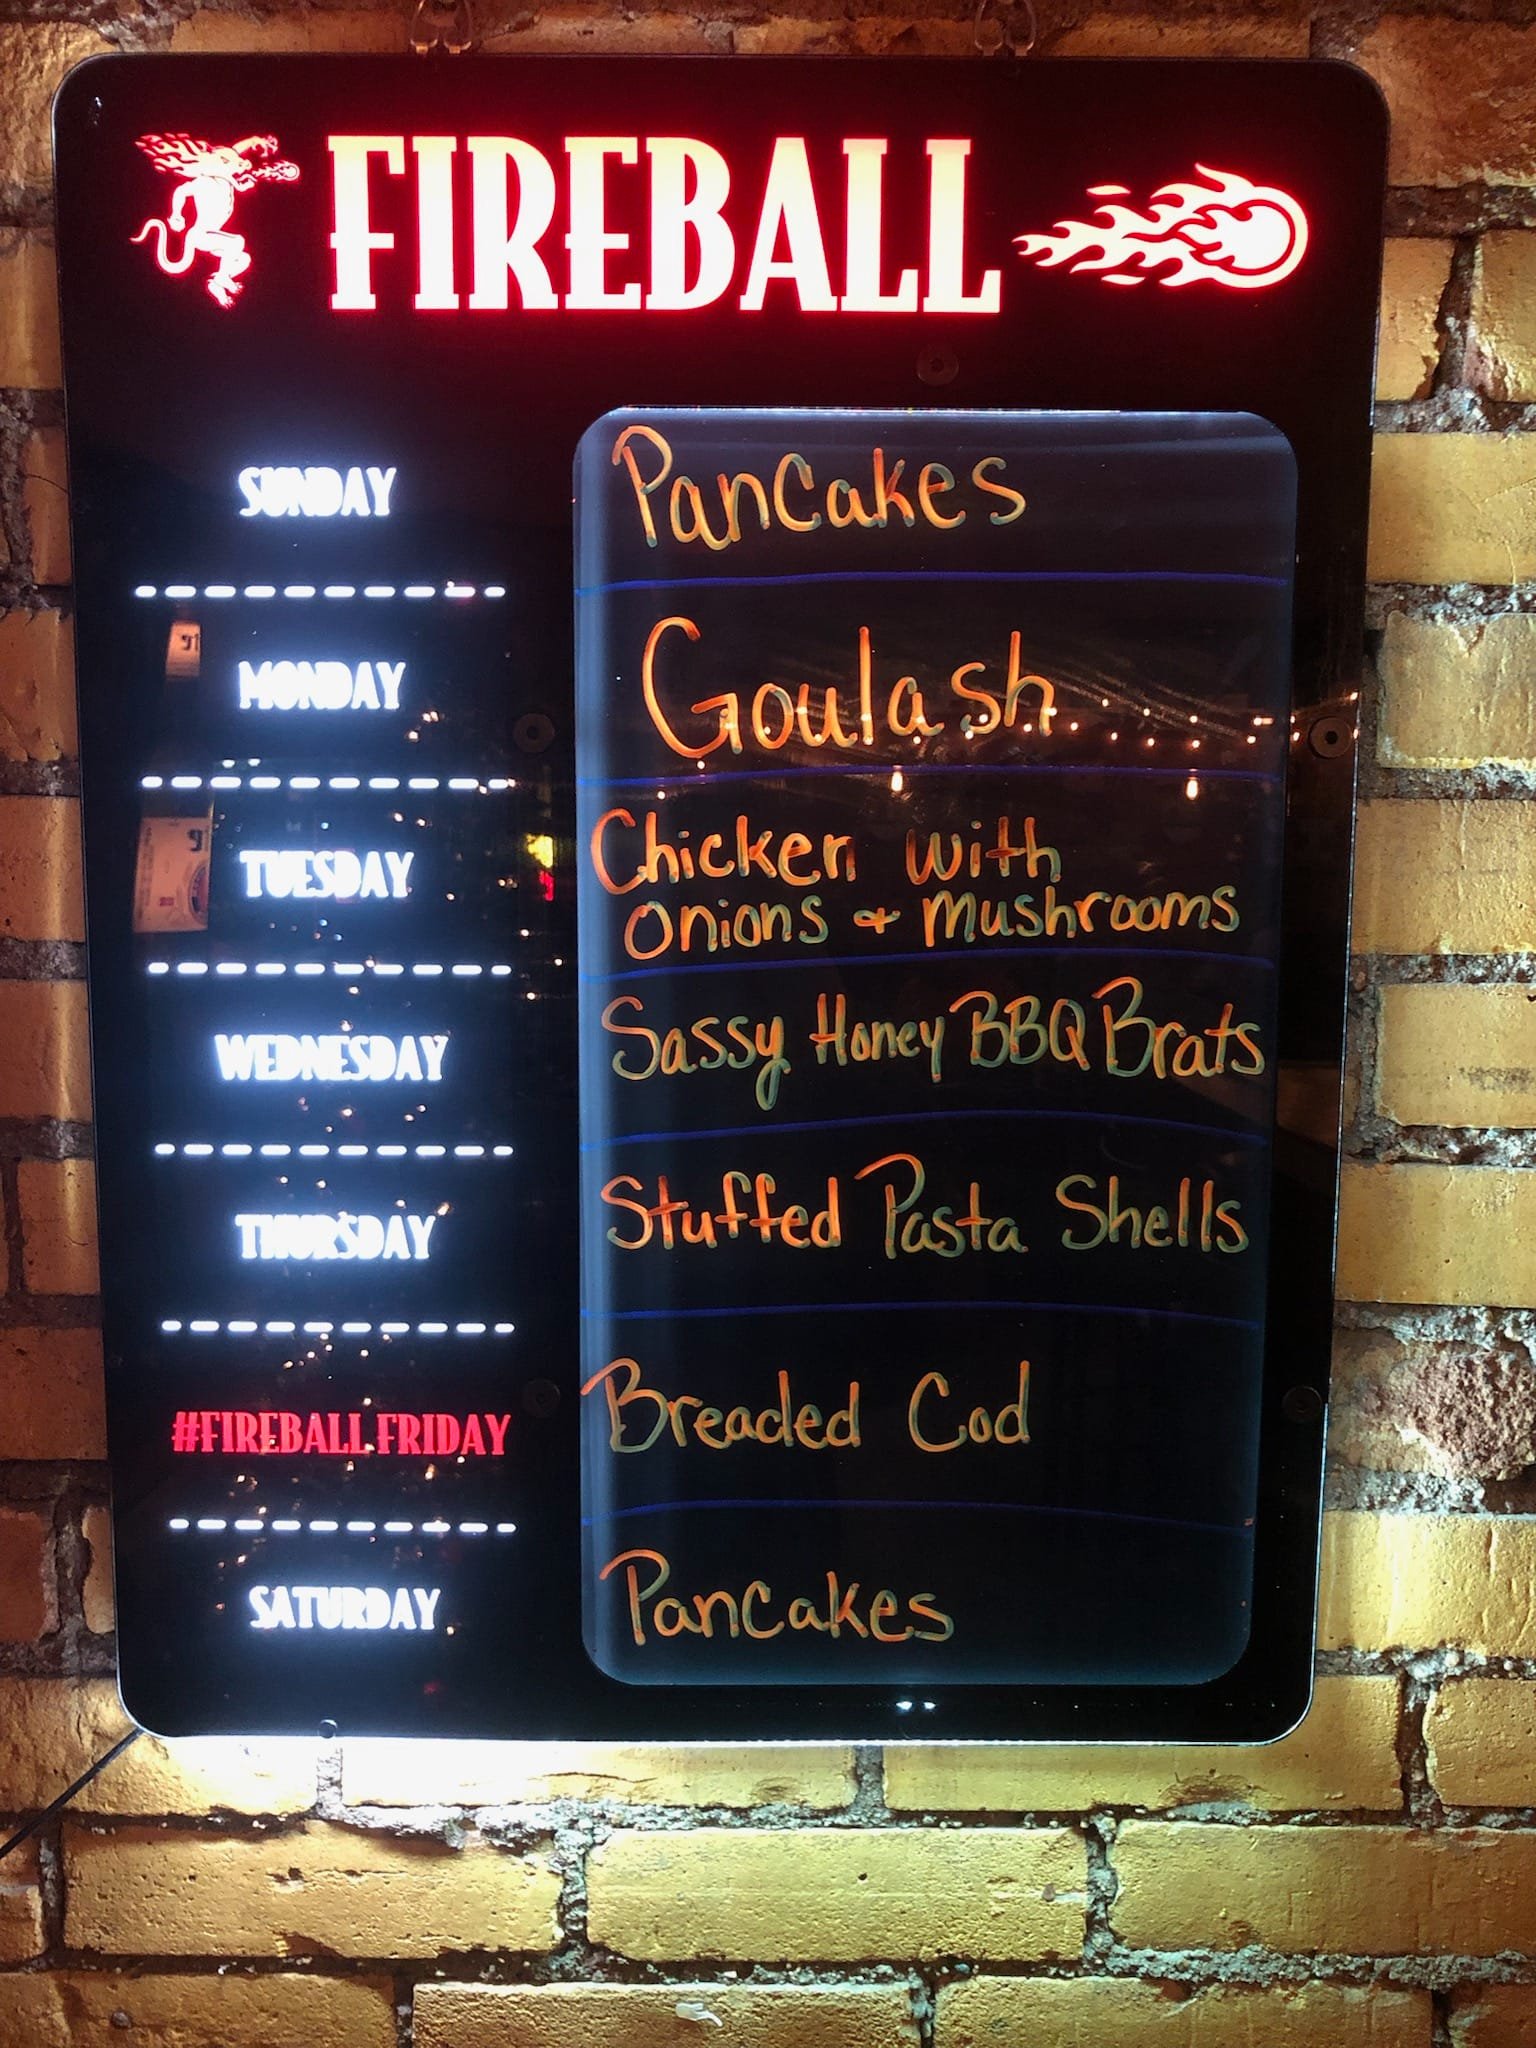 FIREBALL
SUNDAY
Pancakes
MONDAY
Goulash
TUESDAY
Chicken with
onions & mushrooms
WEDNESDAY
Sassy Honey BBQ Brats
THURSDAY
Stuffed Pasta Shells
#FIREBALL FRIDAY
Breaded Cod
SATURDAY
Pancakes